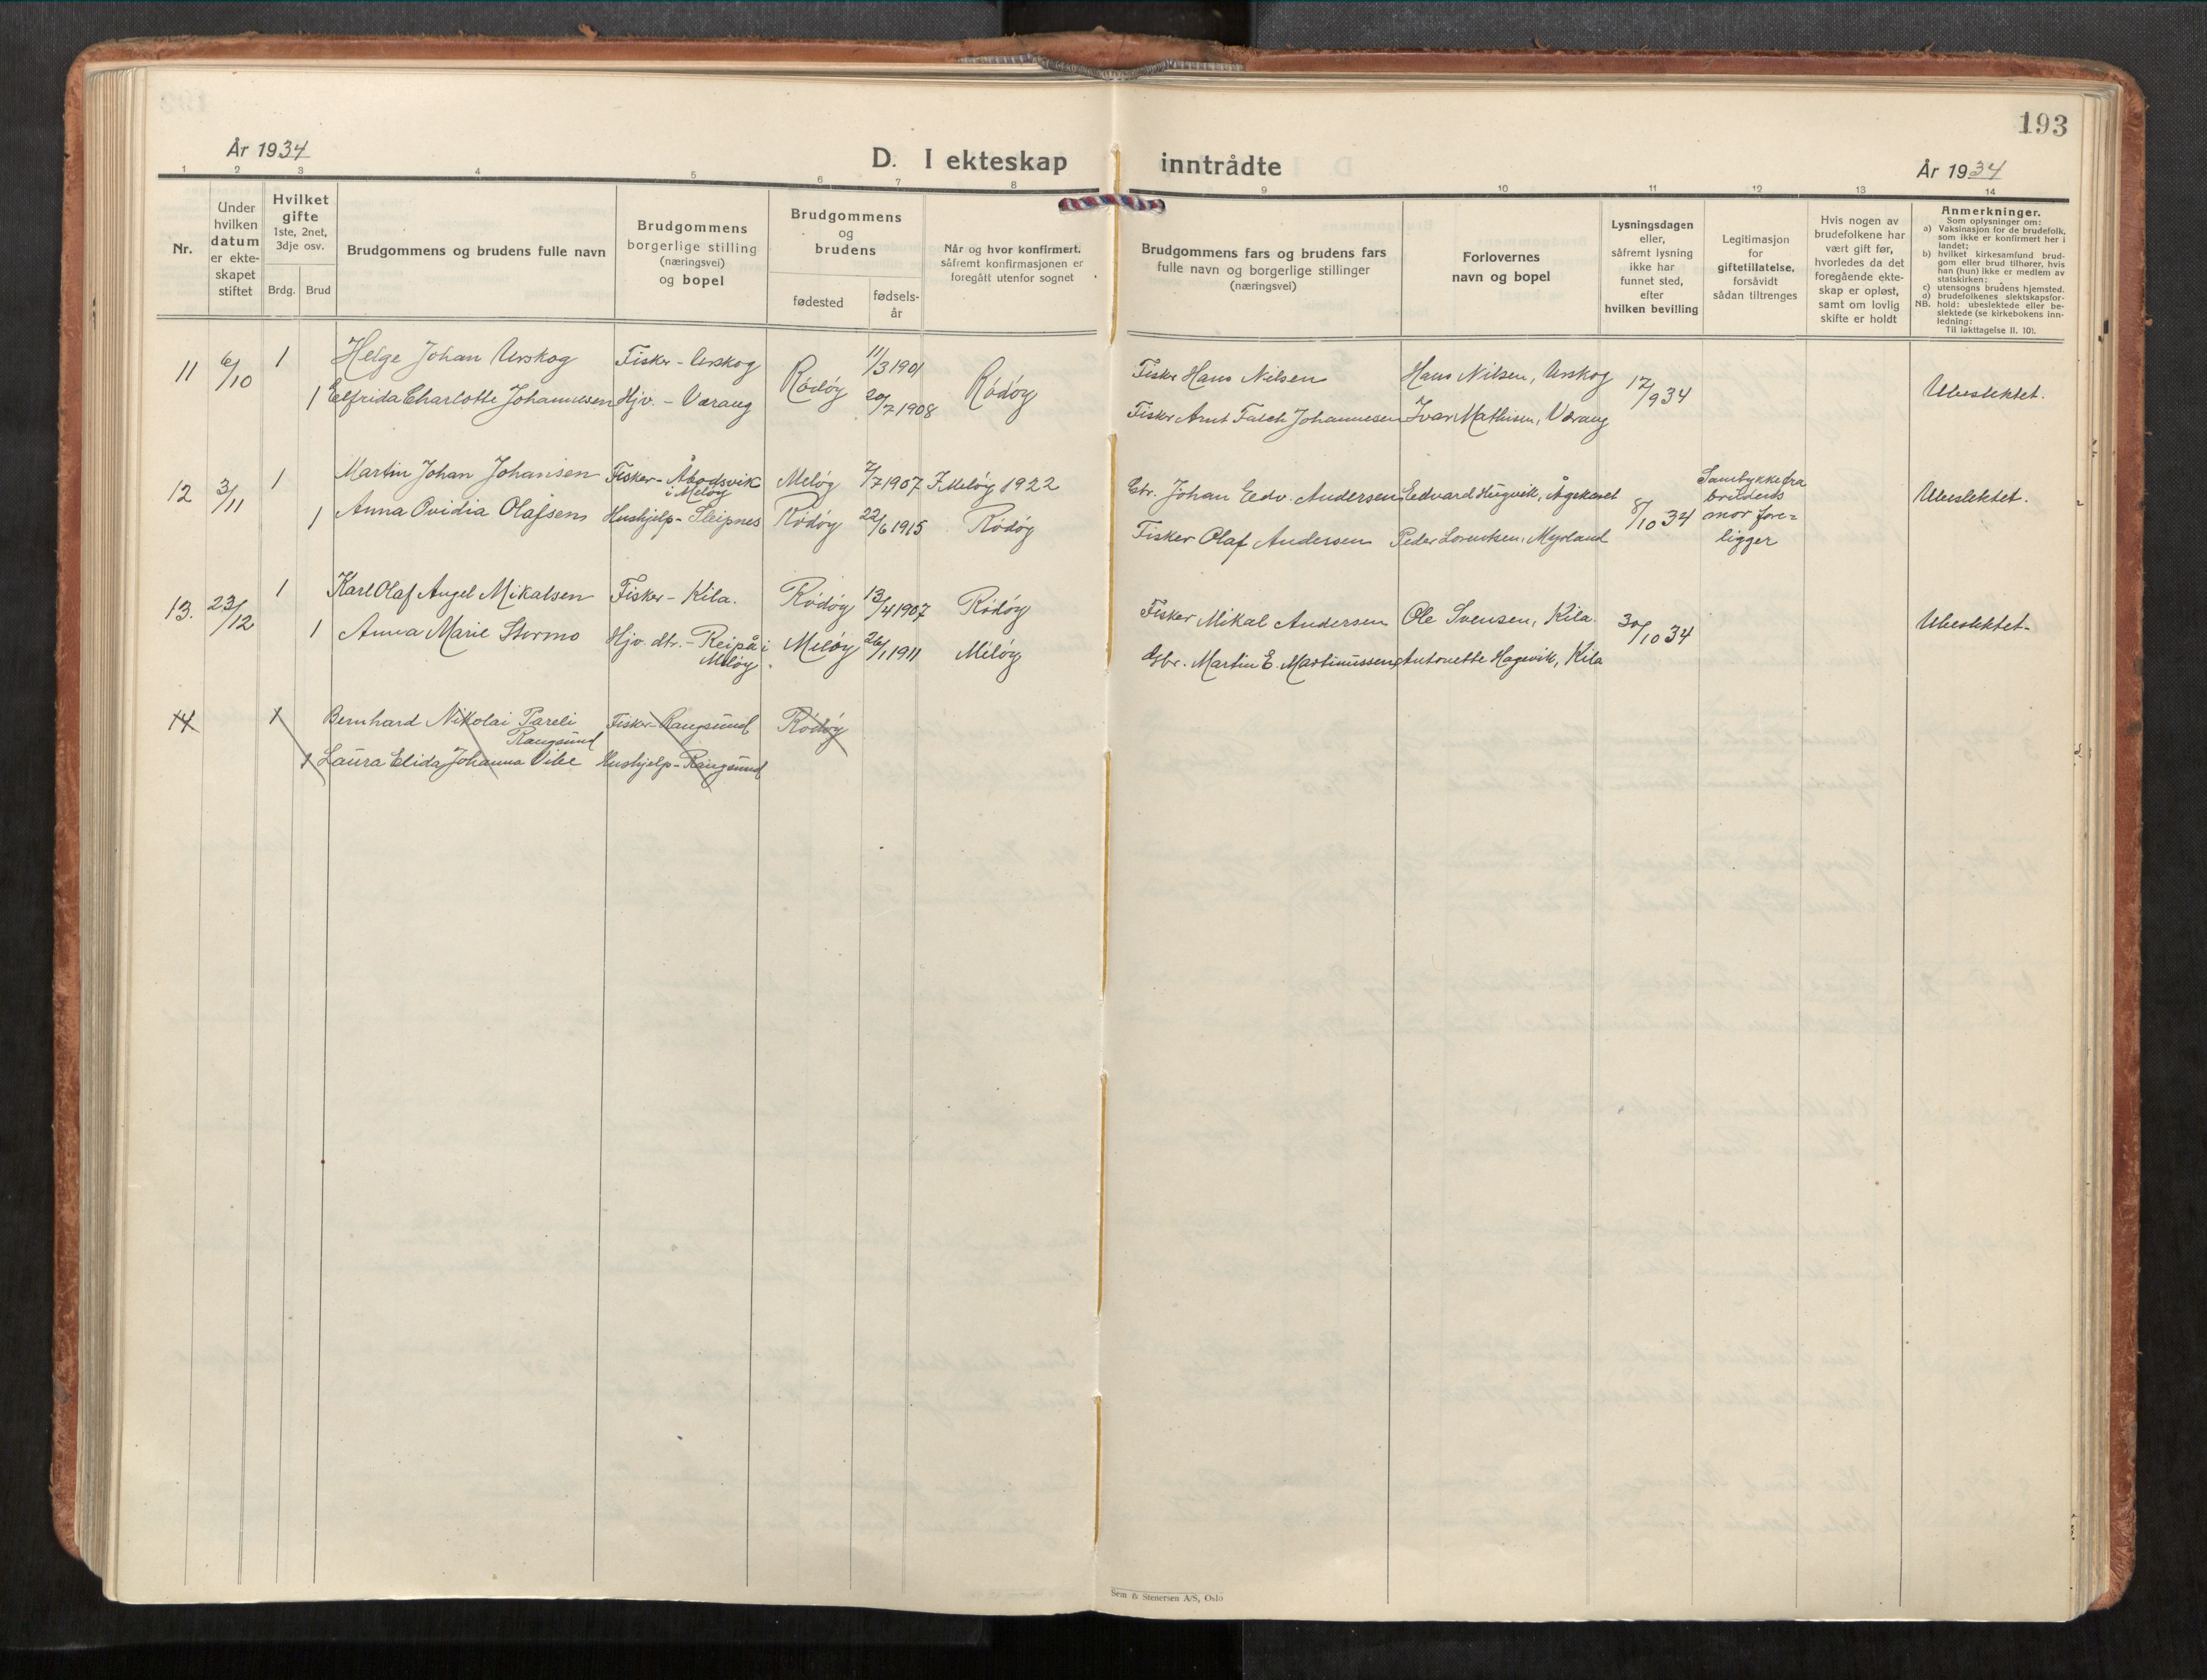 193
År 1934
D. I ekteskap inntrådte
År 1934
1 2 3 4 5 6 7 8 9 10 11 12 13 14
Nr.
Under hvilken datum er ekte-skapet stiftet
Hvilket gifte
1ste, 2net, 3dje osv.
Brdg. Brud
Brudgommens og brudens fulle navn
Brudgommens borgerlige stilling (næringsvei) og bopel
Brudgommens og brudens
fødested
fødsels-år
Når og hvor konfirmert.
såfremt konfirmasjonen er foregått utenfor sognet
Brudgommens fars og brudens fars
fulle navn og borgerlige stillinger
(næringsvei)
Forlovernes
navn og bopel
Lysningsdagen eller, såfremt lysning ikke har funnet sted, efter hvilken bevilling
Legitimasjon for giftetillatelse, forsåvidt sådan tiltrenges
Hvis nogen av brudefolkene har vært gift før, hvorledes da det foregående ekte-skap er opløst, samt om lovlig skifte er holdt
Anmerkninger.
Som oplysninger om:
a) Vaksinasjon for de brudefolk, som ikke er konfirmert her i landet;
b) hvilket kirkesamfund brud-gom eller brud tilhører, hvis han (hun) ikke er medlem av statskirken;
c) utensogns brudens hjemsted.
d) brudefolkenes slektskapsfor-
NB. hold: ubeslektede eller be-slektede (se kirkebokens inn-ledning:
Til iakttagelse II. 10).
11 6/10 1 Helge Johan Urskog Fisker - Urskog Rödöy 11/3 1901 Rödöy Fisker Hans Nilsen Hans Nilsen, Urskog 17/9 34 Ubeslektet.
1 Elfrida Charlotte Johannesen Hjv. - Værang 20/7 1908 Fisker Arnt Falch Johannesen Ivar Mathisen, Værang
12 3/11 1 Martin Johan Johansen Fisker - Åbodsvik i Meløy Meløy 7/7 1907 I Meløy 1922 Gbr. Johan Edv. Andersen Edvard Hugvik, Ågskaret 8/10 34 Samtykke fra brudens mor fore=ligger Ubeslektet.
1 Anna Ovidia Olafsen Hushjelp - Sleipnes Rödöy 22/6 1915 Rödöy Fisker Olaf Andersen Peder Lorentsen, Myrland
13. 23/12 1 Karl Olaf Angel Mikalsen Fisker - Kila. Rödöy 13/4 1907 Rödöy Fisker Mikal Andersen Ole Svensen, Kila. 30/10 34 Ubeslektet-
1 Anna Marie Stormo Hjv. dtr. - Reipå i Meløy. Meløy 26/1 1911 Meløy Gbr. Martin E. Martinussen Antonette Hagevik, Kila
14 1 Bernhard Nikolai Pareli Rangsund Fisker - Rangsund Rödöy
1 Laura Elida Johanna Vibe Hushjelp - Rangsund
Sem & Stenersen A/S, Oslo